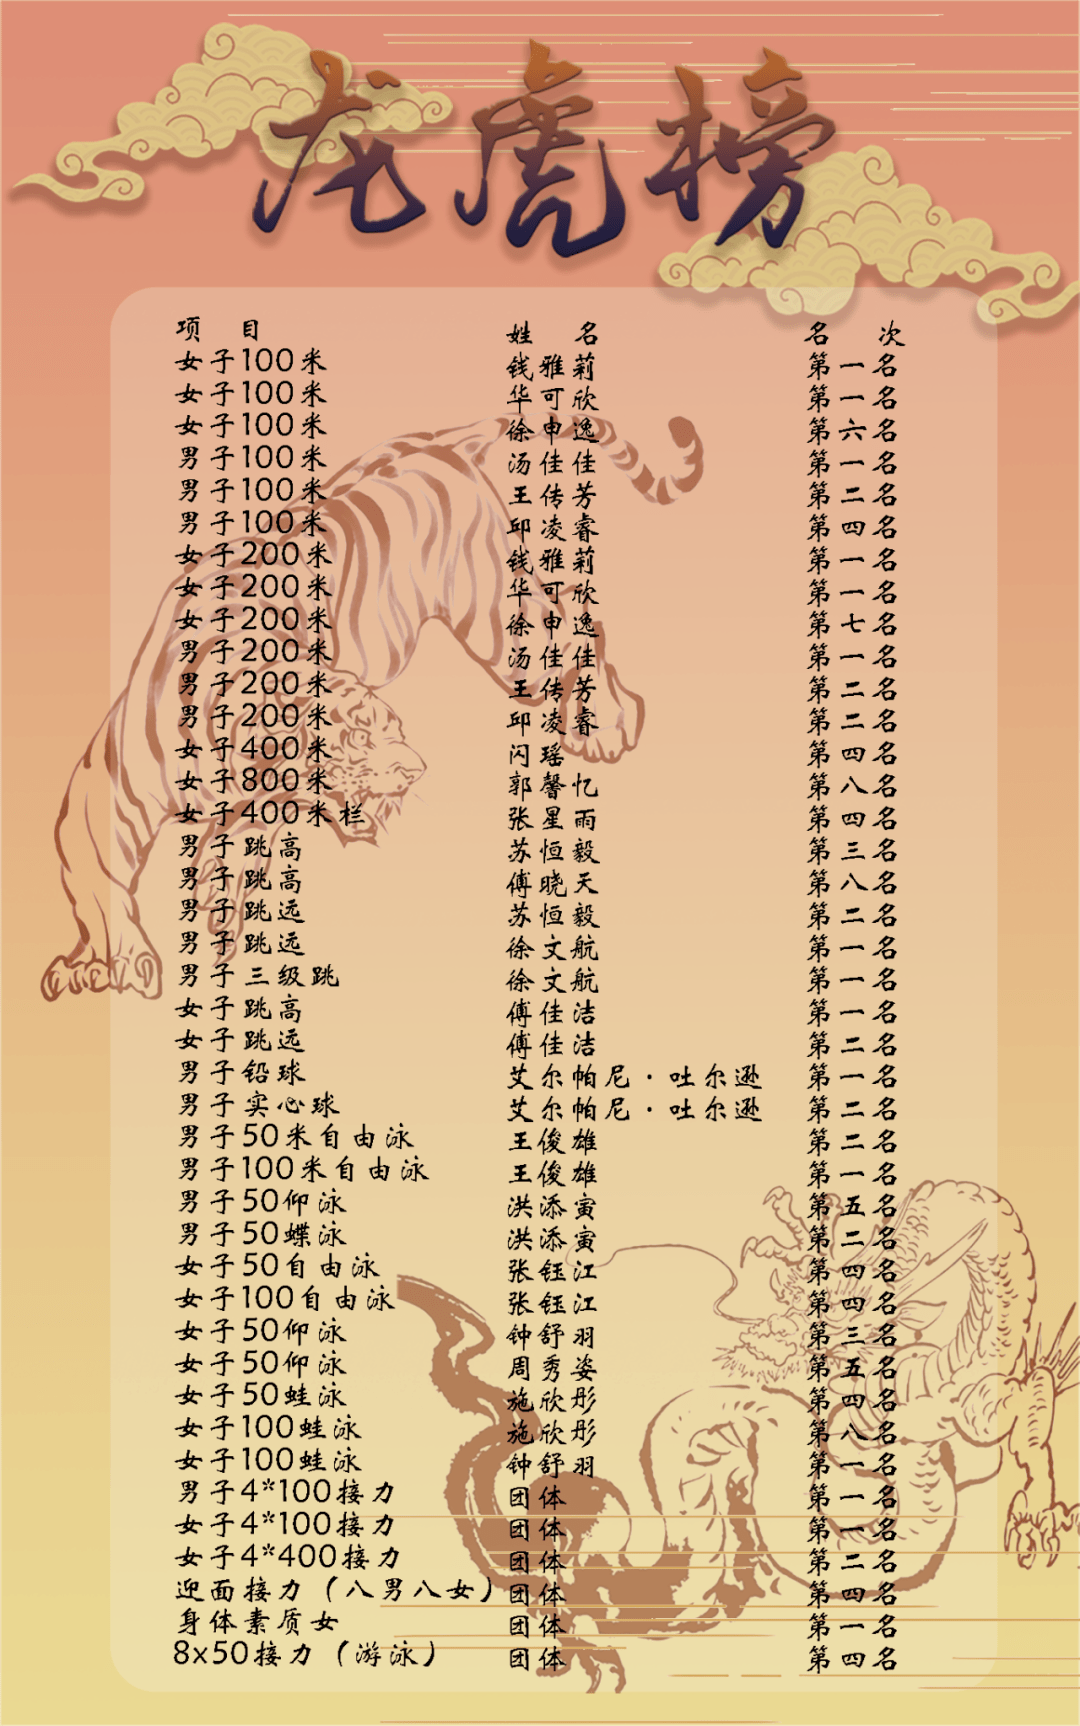 龙虎榜
项 目 姓 名 名 次
女子100米 钱雅莉 第一名
女子100米 华可欣 第一名
女子100米 徐申逸 第六名
男子100米 汤佳佳 第一名
男子100米 王传芳 第二名
男子100米 邱凌睿 第四名
女子200米 钱雅莉 第一名
女子200米 华可欣 第一名
女子200米 徐申逸 第七名
男子200米 汤佳佳 第一名
男子200米 王传芳 第二名
男子200米 邱凌睿 第二名
女子400米 闪瑶 第四名
女子800米 郭馨忆 第八名
女子400米栏 张星雨 第四名
男子跳高 苏恒毅 第三名
男子跳高 傅晓天 第八名
男子跳远 苏恒毅 第二名
男子跳远 徐文航 第一名
男子三级跳 徐文航 第一名
女子跳高 傅佳洁 第一名
女子跳远 傅佳洁 第二名
男子铅球 艾尔帕尼·吐尔逊 第一名
男子实心球 艾尔帕尼·吐尔逊 第二名
男子50米自由泳 王俊雄 第二名
男子100米自由泳 王俊雄 第一名
男子50仰泳 洪添寅 第五名
男子50蝶泳 洪添寅 第二名
女子50自由泳 张钰江 第四名
女子100自由泳 张钰江 第四名
女子50仰泳 钟舒羽 第三名
女子50仰泳 周秀姿 第五名
女子50蛙泳 施欣彤 第四名
女子100蛙泳 施欣彤 第八名
女子100蛙泳 钟舒羽 第一名
男子4*100接力 团体 第一名
女子4*100接力 团体 第一名
女子4*400接力 团体 第二名
迎面接力（八男八女） 团体 第四名
身体素质女 团体 第一名
8x50接力（游泳） 团体 第四名